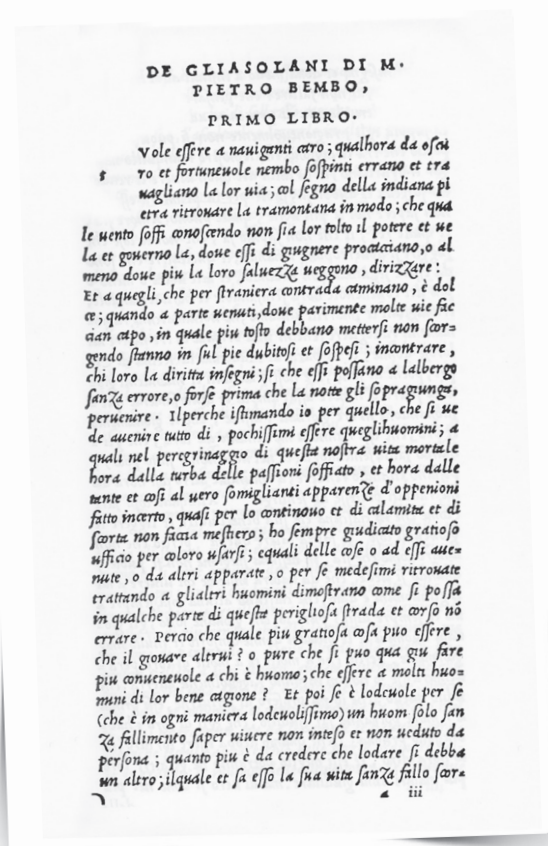 DE GLIASOLANI DI M.
PIETRO BEMBO,
PRIMO LIBRO.
Vole eſſere a nauiganti caro; qualhora da oſcu
s ro et fortuneuole nembo ſoſpinti errano et tra
uagliano la lor uia; col ſegno della indiana pi
etra ritrouare la tramontana in modo; che qua
le uento ſoffi conoſcendo non ſia lor tolto il potere et ue
la et gouerno la, doue eſſi di giugnere procacciano, o al
meno doue piu la loro ſaluezza ueggono, dirizzare:
Et a quegli, che per ſtraniera contrada caminano, è dol
ce; quando a parte uenuti, doue parimente molte uie fac
cian capo, in quale piu toſto debbano metterſi non ſcor=
gendo ſtanno in ſul pie dubitoſi et ſoſpeſi; incontrare,
chi loro la diritta inſegni; ſi che eſſi poſſano a lalbergo
ſanza errore, o forſe prima che la notte gli ſopragiunga,
peruenire. Ilperche iſtimando io per quello, che ſi ue
de auenire tutto di, pochiſſimi eſſere queglihuomini; a
quali nel peregrinaggio di queſta noſtra uita mortale
hora dalla turba delle paſſioni ſoffiato, et hora dalle
tante et coſi al uero ſomiglianti apparenze d'oppenioni
fatto incerto, quaſi per lo continouo et di calamita et di
ſcorta non faccia meſtiero; ho ſempre giudicato gratioſo
ufficio per coloro uſarſi; equali delle coſe o ad eſſi aue=
nute, o da altri apparate, o per ſe medeſimi ritrouate
trattando a glialtri huomini dimoſtrano come ſi poſſa
in qualche parte di queſta periglioſa ſtrada et corſo nō
errare. Percio che quale piu gratioſa coſa puo eſſere,
che il giouare altrui? o pure che ſi puo qua giu fare
piu conueneuole a chi è huomo; che eſſere a molti huo=
mini di lor bene cagione? Et poi ſe è lodeuole per ſe
(che è in ogni maniera lodeuoliſſimo) un huom ſolo ſan
za fallimento ſaper uiuere non inteſo et non ueduto da
perſona; quanto piu è da credere che lodare ſi debba
un altro; ilquale et ſa eſſo la ſua uita ſanza fallo ſcor=
a iii